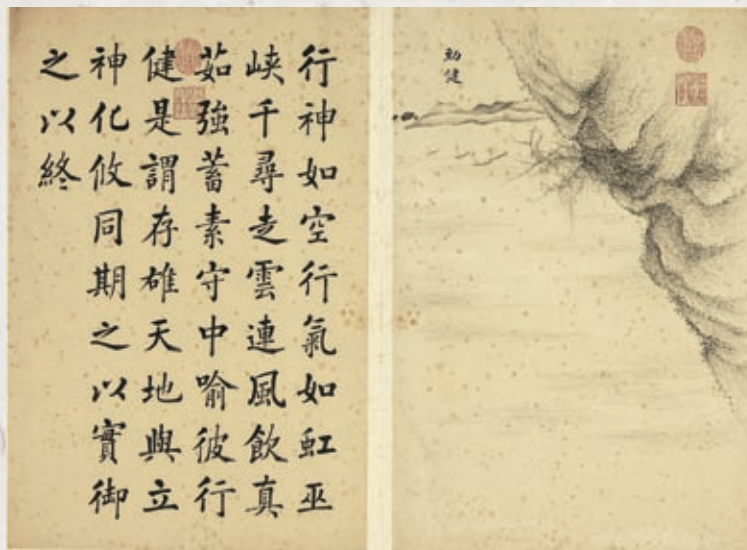 勁健
行神如空行氣如虹巫
峽千尋走雲連風飲真
茹強蓄素守中喻彼行
健是謂存雄天地與立
神化攸同期之以實御
之以終